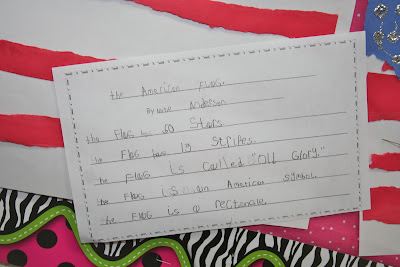 the American Flag.
By Anderson
the Flag has 50 Stars
the Flag has 13 Stripes.
the Flag is called "Old Glory."
the Flag is an American symbol.
the Flag is a rectangle.